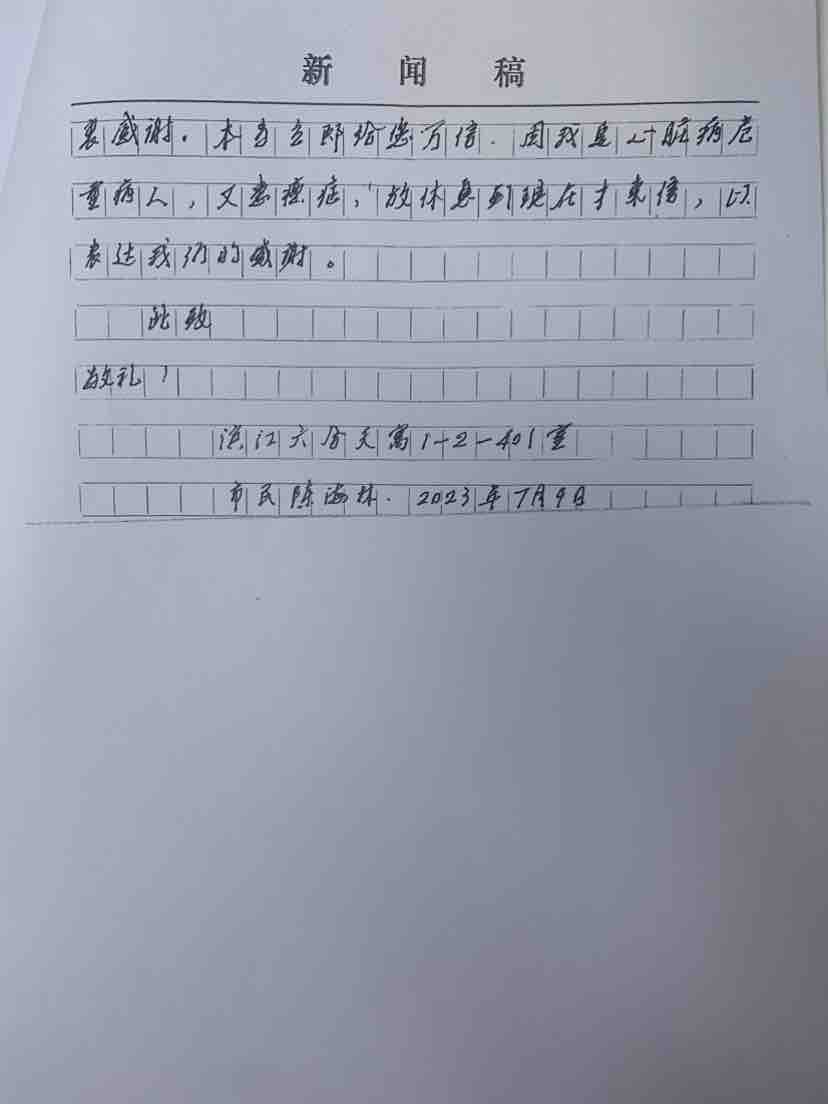 新闻稿
衷感谢。本应立即给您万信.因我是心脏病危
重病人,又患癌症,故休息到现在才来信,以
表达我们的感谢。
此致
敬礼!
滨江六合天寓1-2-401室
市民陈海林.2023年7月9日